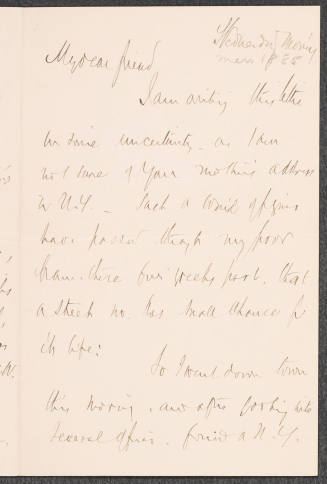 Wednesday Morning
1885
My dear friend
I am writing this little
in some uncertainty, as I am
not sure of your mother's address
in N.Y. Such a world of figures
have passed through my poor
brain these four weeks past, that
a street no. has small chance for
its life:
So I went down town
this morning, and after looking into
several offices, found a N.Y.